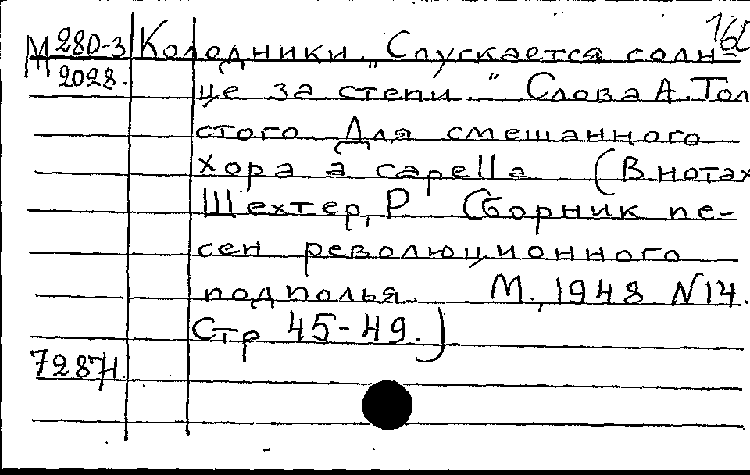 160
М 280-3 Колодники „Спускается солн-
2028. це за степи" Слова А. Тол
стого Для смешанного
хора a capella (В нотах
Шехтер, Р Сборник пе-
сен революционного
подполья М., 1948 №14.
Стр 45-49.)
7287Н